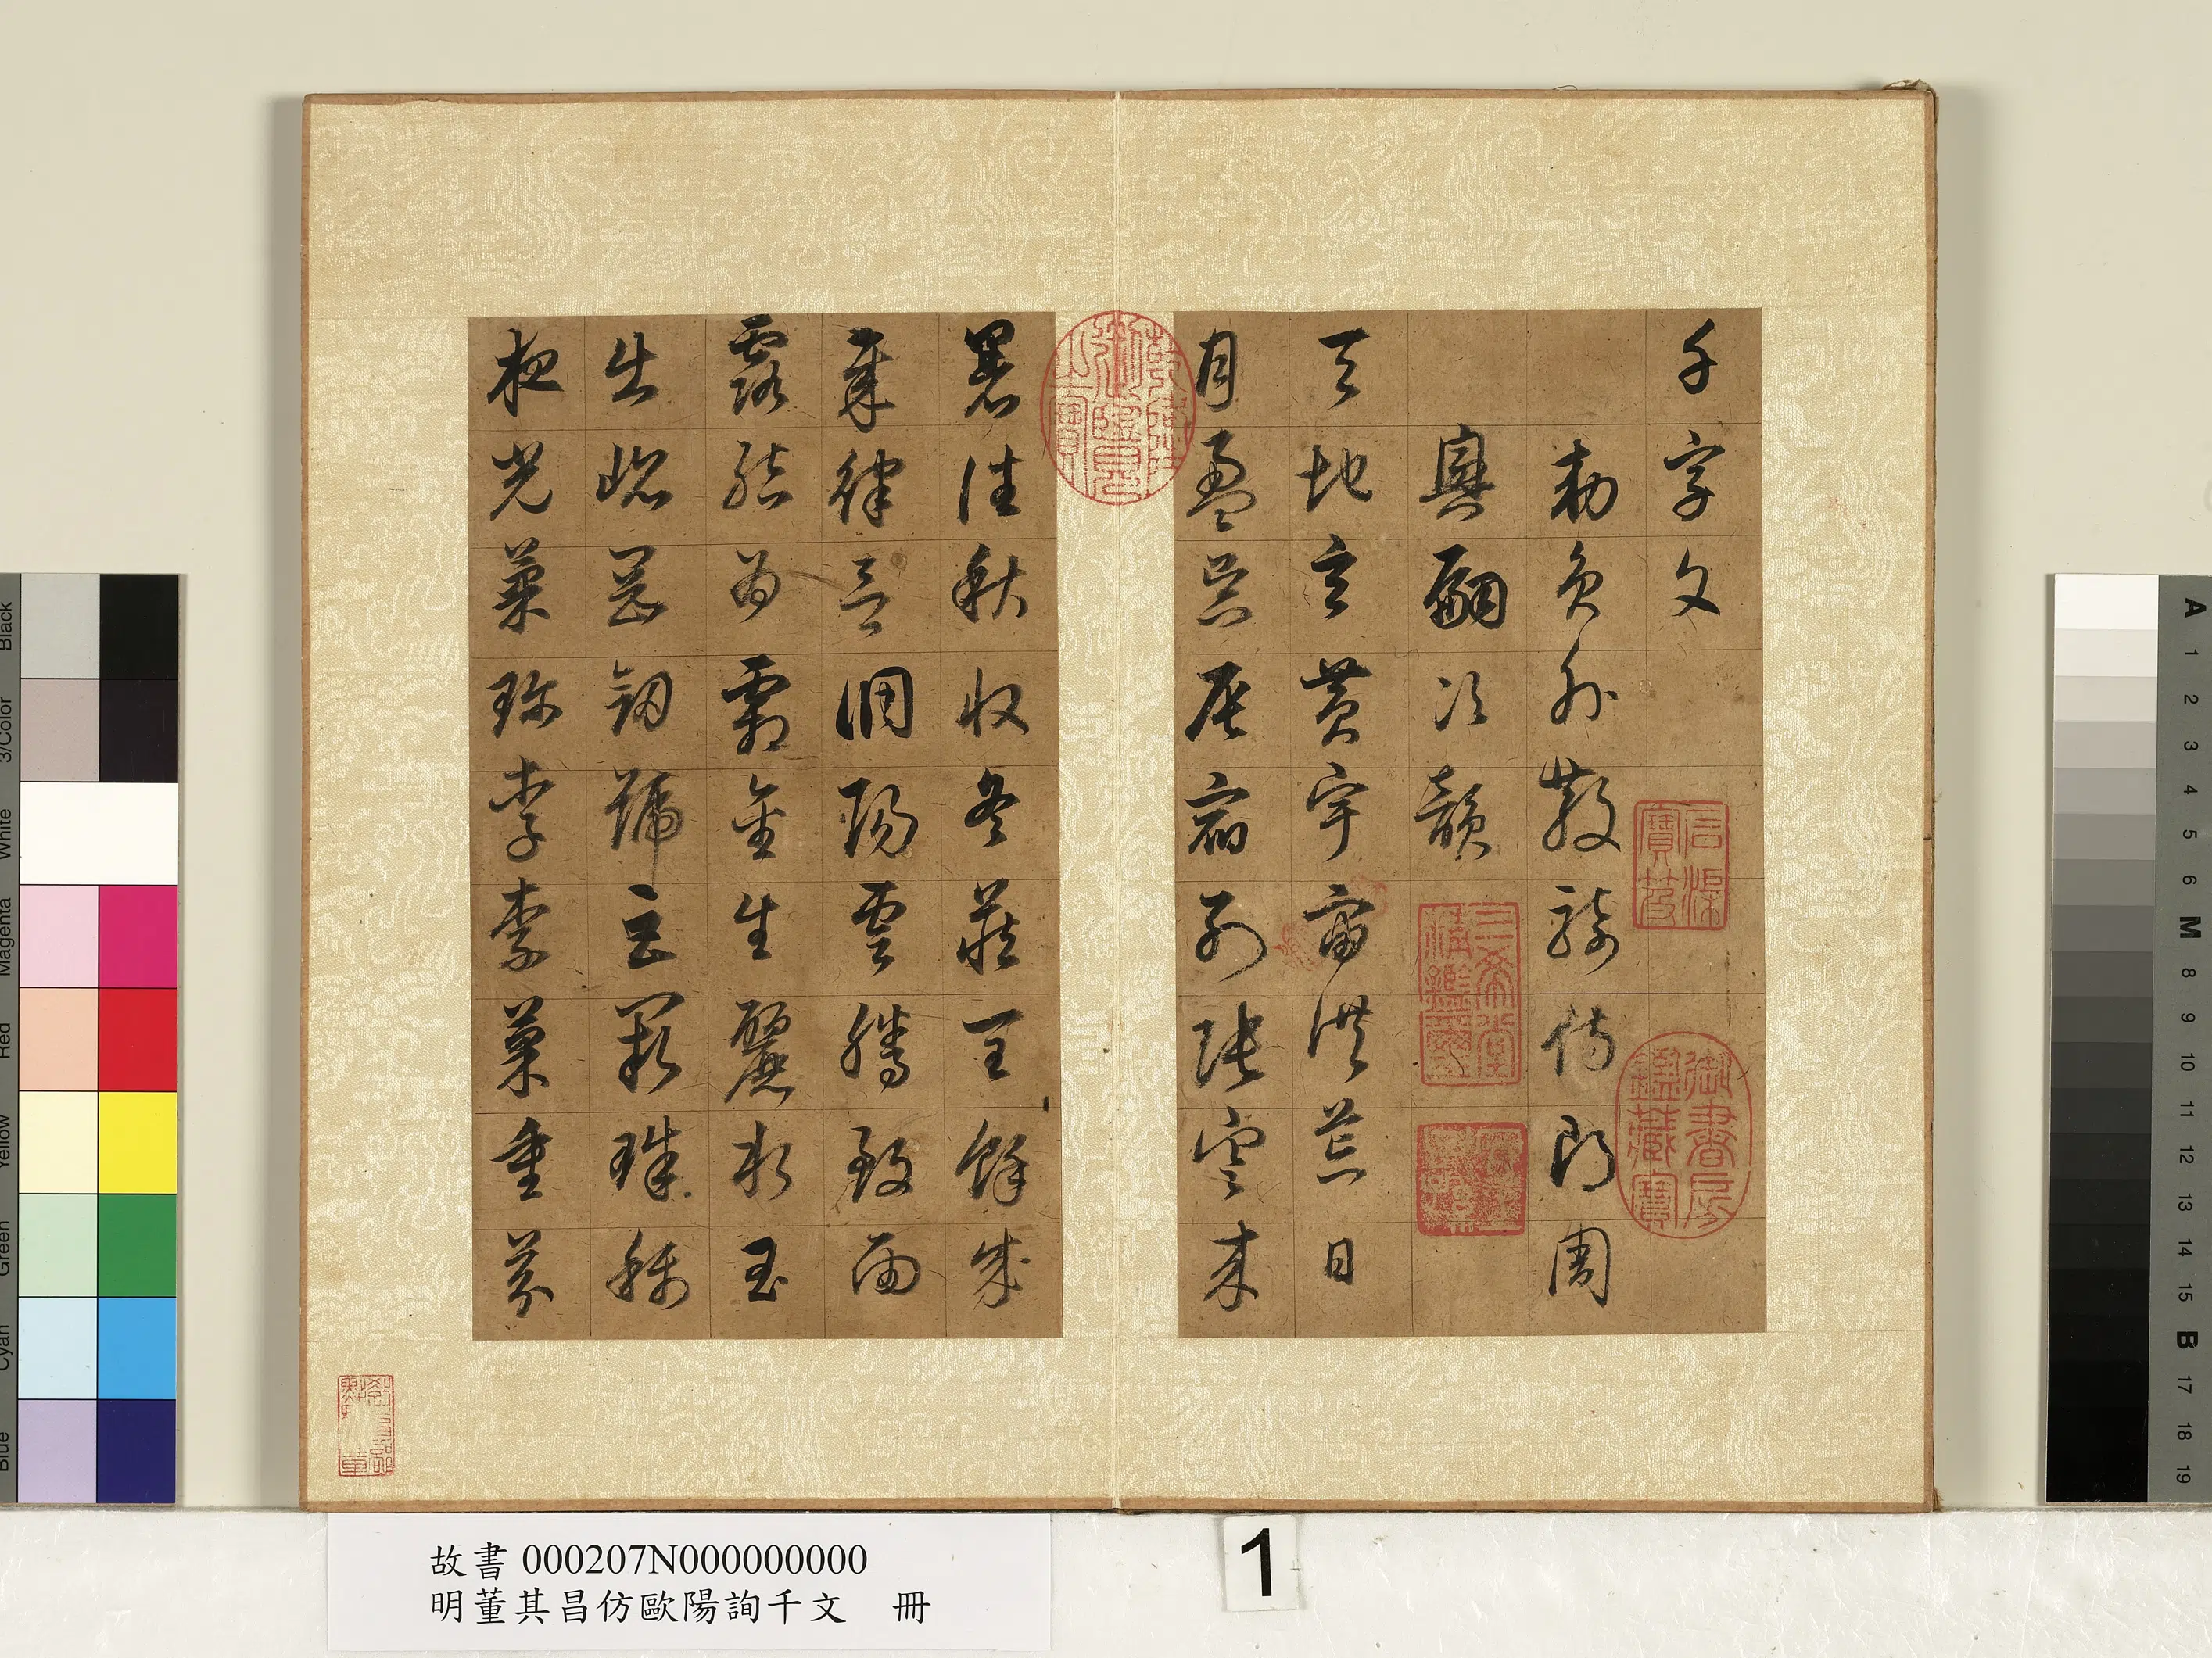 千字文
勅員外散騎侍郎周
興嗣次韻
天地玄黃宇宙洪荒日
月盈昃辰宿列張寒來
暑往秋收冬藏閏餘成
歲律呂調陽雲騰致雨
露結為霜金生麗水玉
出崑岡劍號巨闕珠稱
夜光菓珍李柰菜重芥
石渠寶笈
御書房鑑藏寶
三希堂精鑑璽
乾隆御覽之寶
故書 000207N000000000
明董其昌仿歐陽詢千文 冊
1
Black
3/Color
White
Magenta
Red
Yellow
Green
Cyan
Blue
A
1
2
3
4
5
6
M
8
9
10
11
12
13
14
15
B
17
18
19